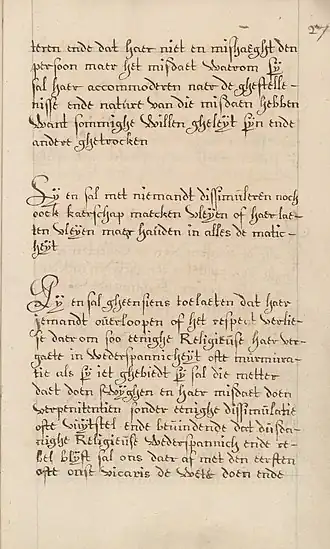 27
teren ende dat haer niet en mishaeght den
persoon maer het misdaet waerom sy
sal haer accommoderen naer de ghestelle-
nisse ende nature van die misdaen hebben
want sommighe willen gheleyt syn ende
andere ghetrocken
Sy en sal met niemandt dissimuleren noch
oock kaerschap maecken vleyen of haer lae-
ten vleyen maer hauden in alles de matic-
heyt
Sy en sal gheensiens toelaeten dat haer
jemandt ouerloopen of het respect verlie-
se daer om soo eenighe Religieuse haer ver-
gaete in wederspannicheyt ofte murmura-
tie als sy iet ghebiedt sy sal die metter
daet doen swyghen en haer misdaet doen
verpenitentien sonder eenighe dissimulatie
ofte vuytstel ende bevindende dat dusda-
nighe Religieuse wederspannich ende re-
bel blyft sal ons daer af met den eersten
ofte onse vicaris de wete doen ende